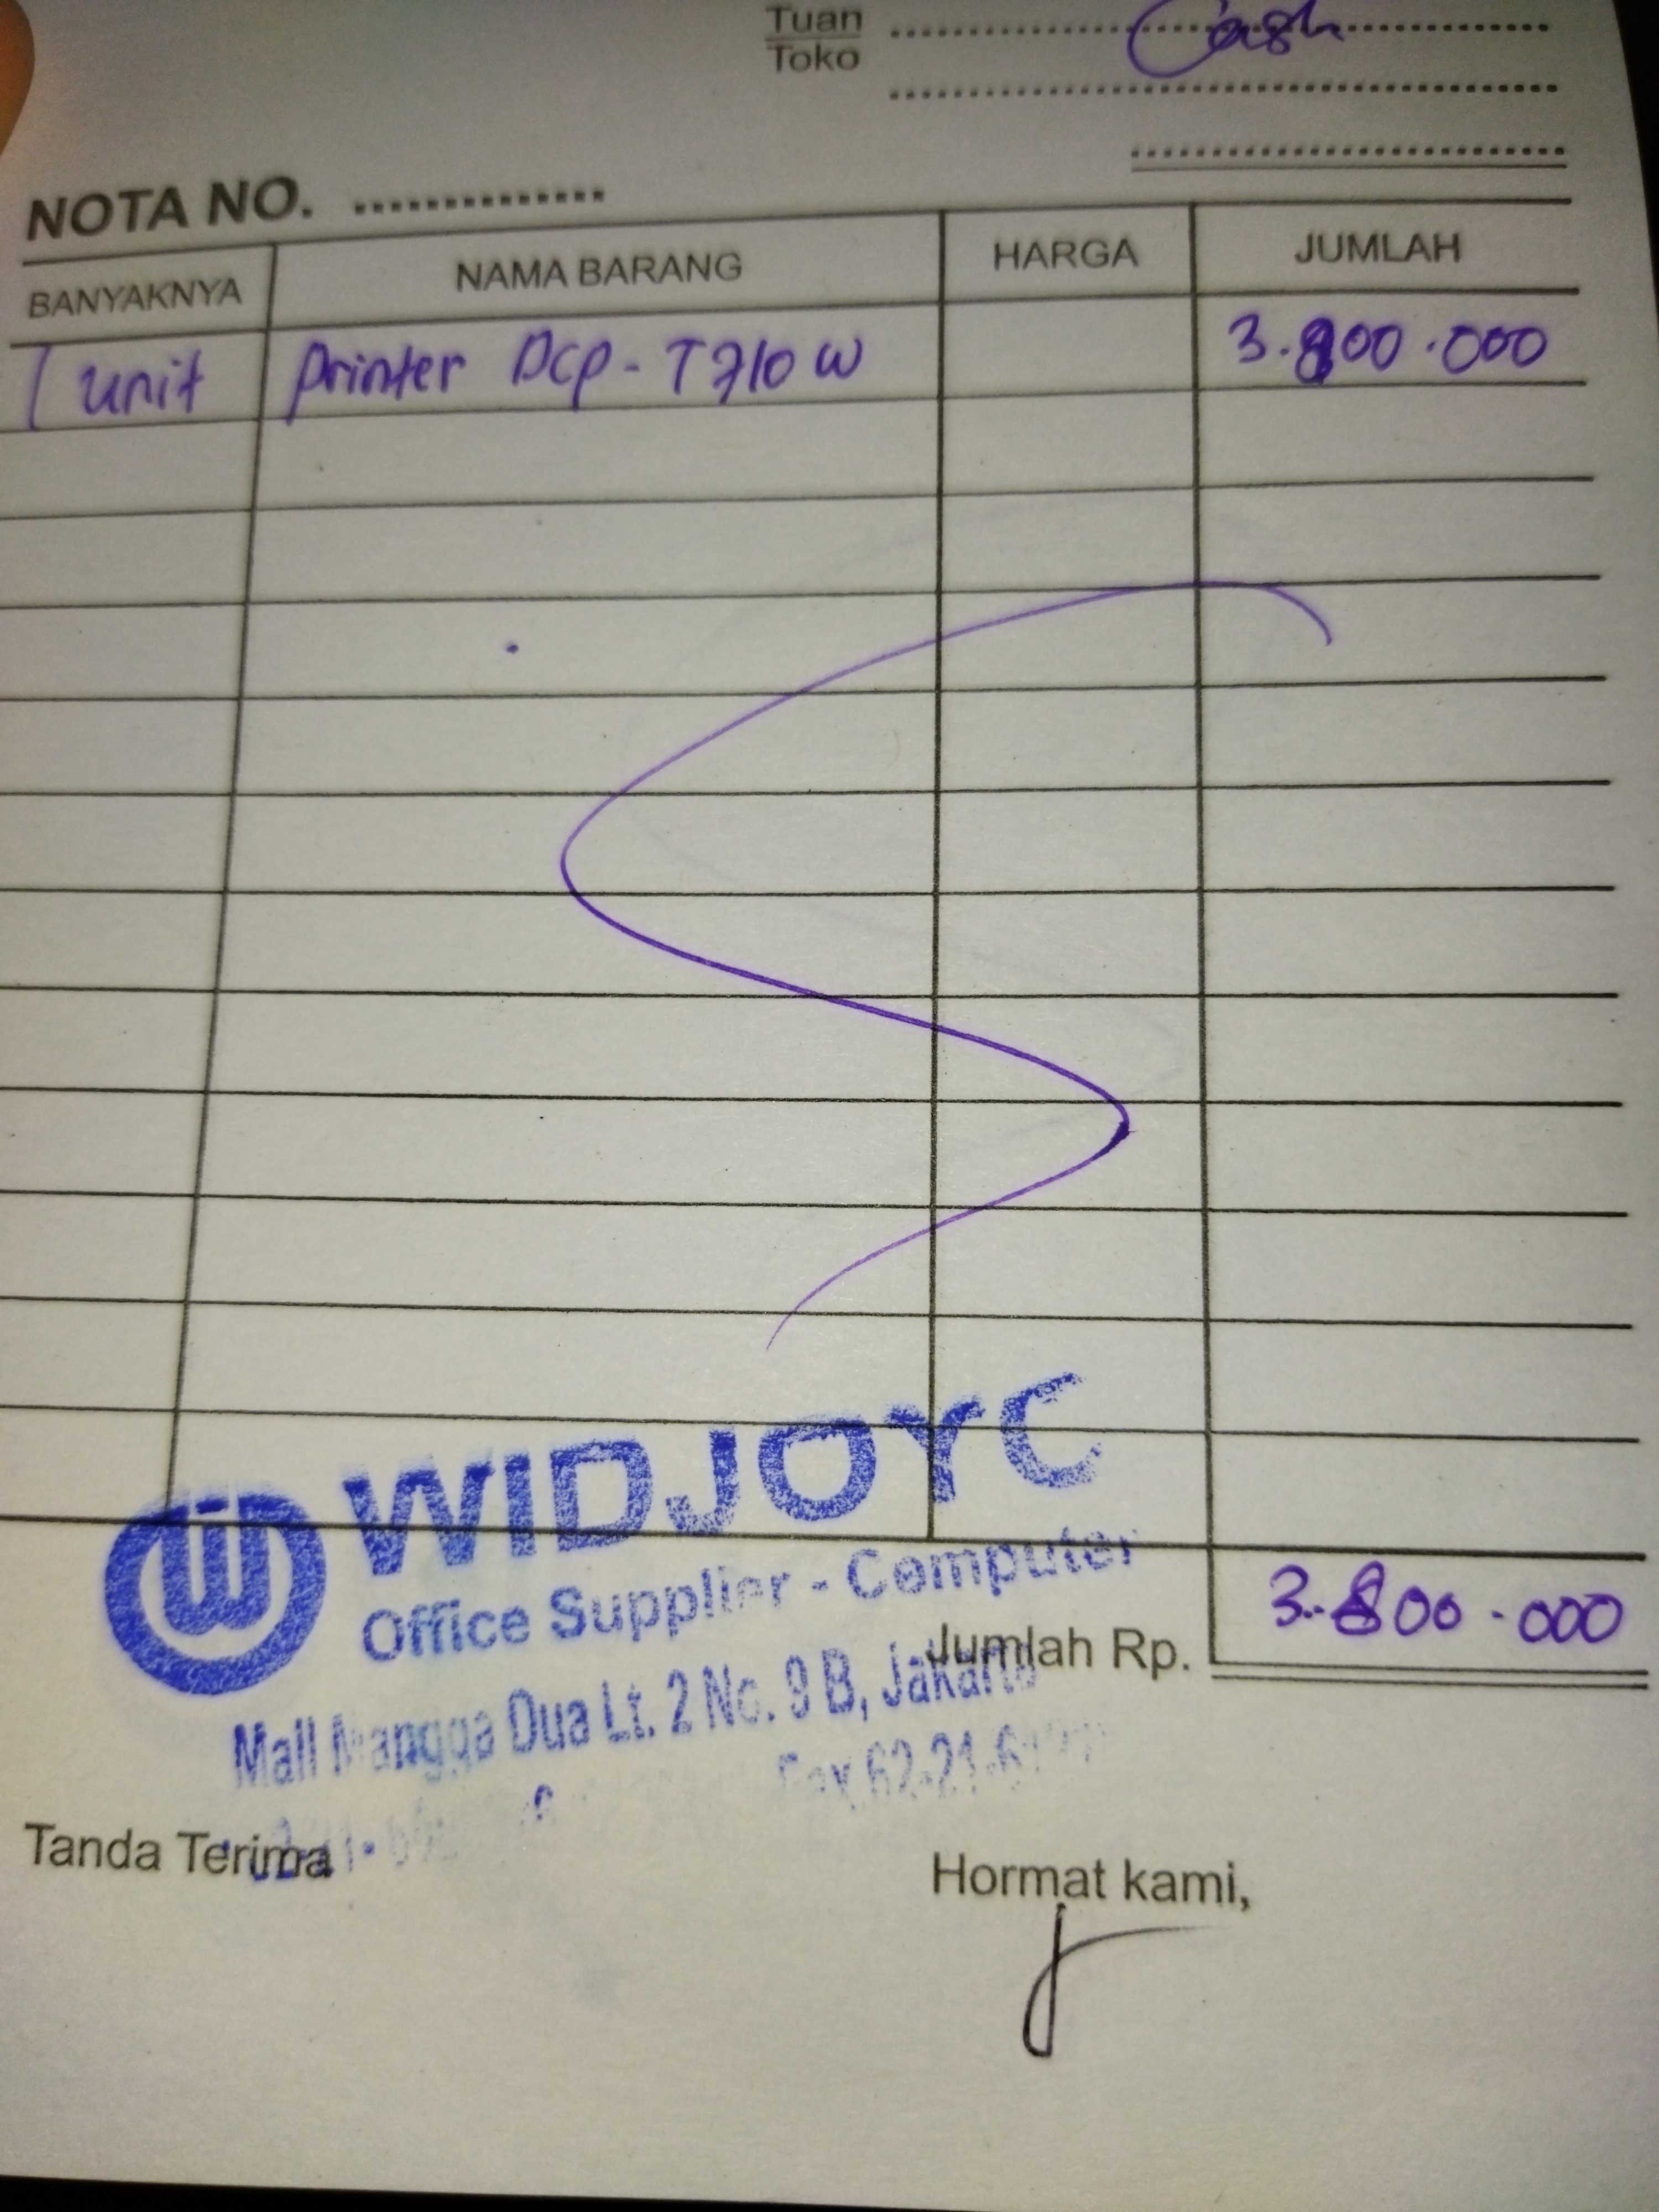 Tuan
Toko
Cash
NOTA NO.
BANYAKNYA NAMA BARANG HARGA JUMLAH
1 unit Printer DCP-T710W 3.800.000
WIDJOYO
Office Supplier - Computer
Jumlah Rp. 3.800.000
Mall Mangga Dua Lt. 2 No. 9 B, Jakarta
Fax 62-21-6
Tanda Terima
Hormat kami,